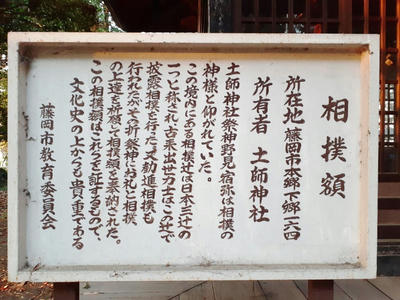 相撲額
所在地 藤岡市本郷下郷一六四
所有者 土師神社
土師神社祭神野見宿弥は相撲の
神様と仰がれていた。
この境内にある相撲辻は日本三辻の
一つと称され古来出世力士はこの辻で
披露相撲を行った。又勧進相撲も
行われたがその折祭神にお礼と相撲
の上達を祈願して相撲額を奉納された。
この相撲額はこれらを証するもので、
文化史の上からも貴重である
藤岡市教育委員会